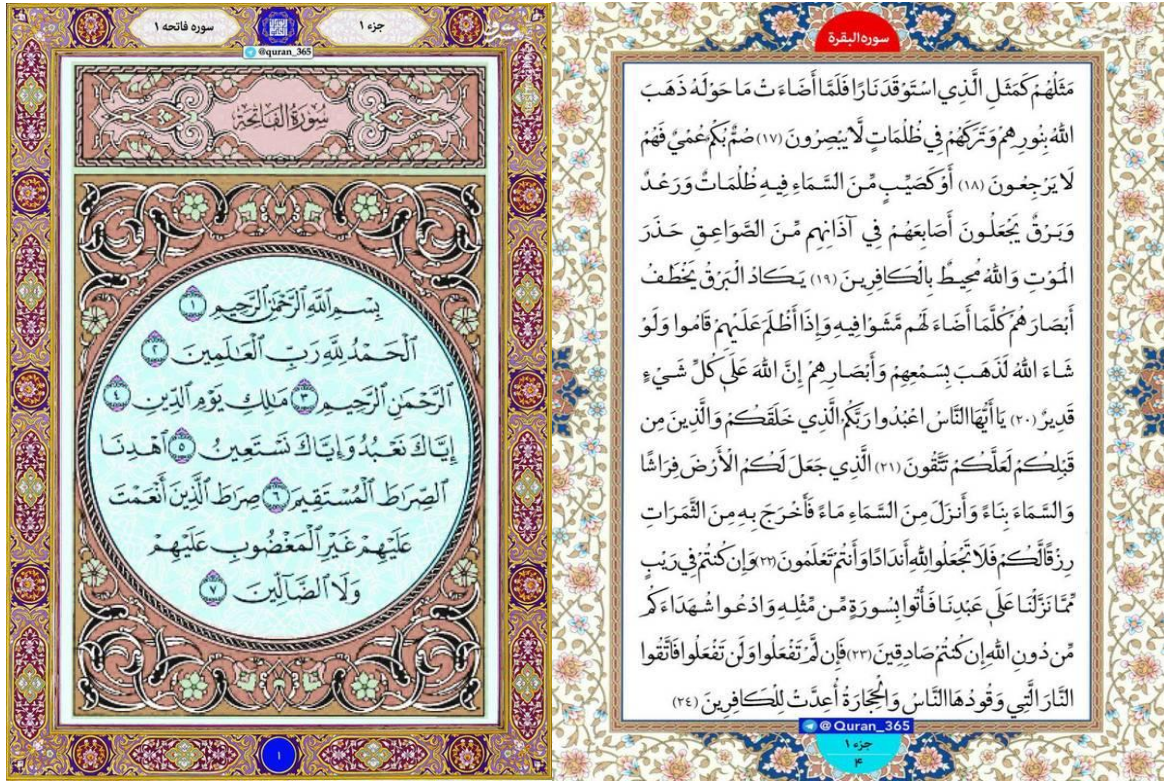 جزء ۱
سوره فاتحه ۱
@quran_365
سُورَةُ الفَاتِحَةِ
بِسْمِ ٱللَّهِ ٱلرَّحْمَٰنِ ٱلرَّحِيمِ ۝١
ٱلْحَمْدُ لِلَّهِ رَبِّ ٱلْعَٰلَمِينَ ۝٢
ٱلرَّحْمَٰنِ ٱلرَّحِيمِ ۝٣ مَٰلِكِ يَوْمِ ٱلدِّينِ ۝٤
إِيَّاكَ نَعْبُدُ وَإِيَّاكَ نَسْتَعِينُ ۝٥ ٱهْدِنَا
ٱلصِّرَٰطَ ٱلْمُسْتَقِيمَ ۝٦ صِرَٰطَ ٱلَّذِينَ أَنْعَمْتَ
عَلَيْهِمْ غَيْرِ ٱلْمَغْضُوبِ عَلَيْهِمْ
وَلَا ٱلضَّآلِّينَ ۝٧
۱
سوره البقرة
مَثَلُهُمْ كَمَثَلِ الَّذِي اسْتَوْقَدَ نَارًا فَلَمَّا أَضَاءَتْ مَا حَوْلَهُ ذَهَبَ
اللَّهُ بِنُورِهِمْ وَتَرَكَهُمْ فِي ظُلُمَاتٍ لَّا يُبْصِرُونَ (١٧) صُمٌّ بُكْمٌ عُمْيٌ فَهُمْ
لَا يَرْجِعُونَ (١٨) أَوْ كَصَيِّبٍ مِّنَ السَّمَاءِ فِيهِ ظُلُمَاتٌ وَرَعْدٌ
وَبَرْقٌ يَجْعَلُونَ أَصَابِعَهُمْ فِي آذَانِهِم مِّنَ الصَّوَاعِقِ حَذَرَ
الْمَوْتِ وَاللَّهُ مُحِيطٌ بِالْكَافِرِينَ (١٩) يَكَادُ الْبَرْقُ يَخْطَفُ
أَبْصَارَهُمْ كُلَّمَا أَضَاءَ لَهُم مَّشَوْا فِيهِ وَإِذَا أَظْلَمَ عَلَيْهِمْ قَامُوا وَلَوْ
شَاءَ اللَّهُ لَذَهَبَ بِسَمْعِهِمْ وَأَبْصَارِهِمْ إِنَّ اللَّهَ عَلَىٰ كُلِّ شَيْءٍ
قَدِيرٌ (٢٠) يَا أَيُّهَا النَّاسُ اعْبُدُوا رَبَّكُمُ الَّذِي خَلَقَكُمْ وَالَّذِينَ مِن
قَبْلِكُمْ لَعَلَّكُمْ تَتَّقُونَ (٢١) الَّذِي جَعَلَ لَكُمُ الْأَرْضَ فِرَاشًا
وَالسَّمَاءَ بِنَاءً وَأَنزَلَ مِنَ السَّمَاءِ مَاءً فَأَخْرَجَ بِهِ مِنَ الثَّمَرَاتِ
رِزْقًا لَّكُمْ فَلَا تَجْعَلُوا لِلَّهِ أَندَادًا وَأَنتُمْ تَعْلَمُونَ (٢٢) وَإِن كُنتُمْ فِي رَيْبٍ
مِّمَّا نَزَّلْنَا عَلَىٰ عَبْدِنَا فَأْتُوا بِسُورَةٍ مِّن مِّثْلِهِ وَادْعُوا شُهَدَاءَكُم
مِّن دُونِ اللَّهِ إِن كُنتُمْ صَادِقِينَ (٢٣) فَإِن لَّمْ تَفْعَلُوا وَلَن تَفْعَلُوا فَاتَّقُوا
النَّارَ الَّتِي وَقُودُهَا النَّاسُ وَالْحِجَارَةُ أُعِدَّتْ لِلْكَافِرِينَ (٢٤)
@Quran_365
جزء ۱
۴